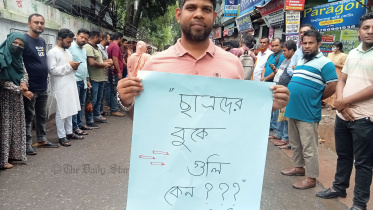 Paragon
"ছাত্রদের
বুকে
গুলি
কেন ???"
© The Daily Star